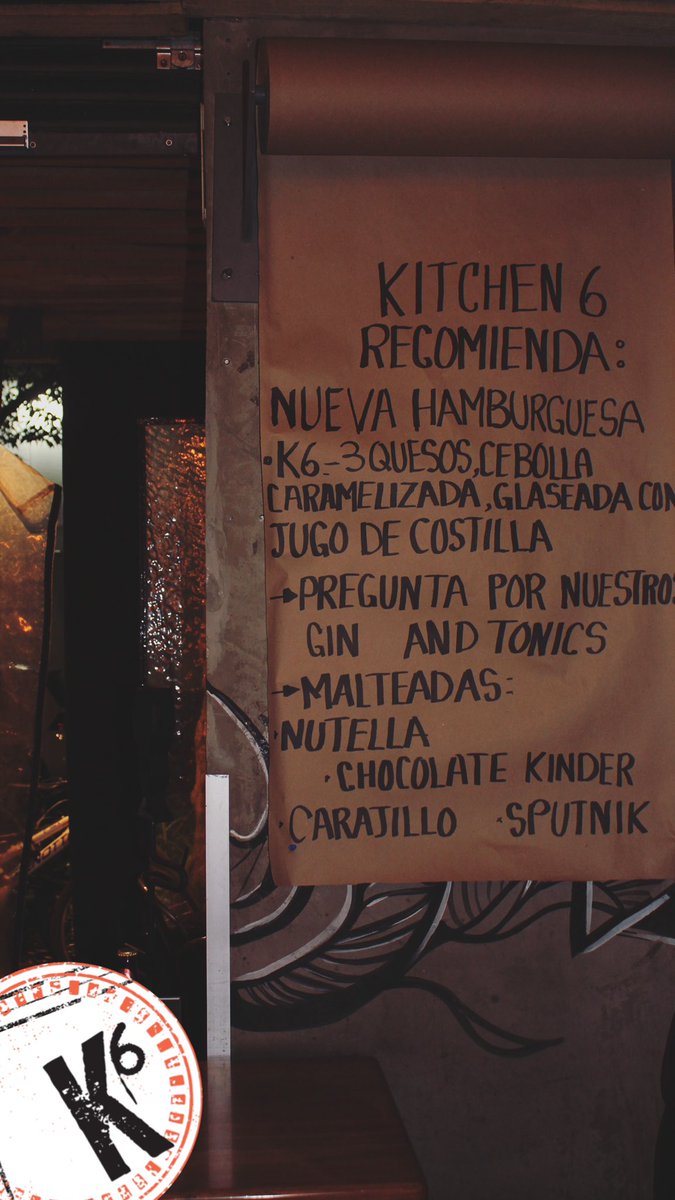 KITCHEN 6
RECOMIENDA:
NUEVA HAMBURGUESA
·K6-3 QUESOS, CEBOLLA
CARAMELIZADA, GLASEADA CON
JUGO DE COSTILLA
→PREGUNTA POR NUESTROS
GIN AND TONICS
→MALTEADAS:
·NUTELLA
·CHOCOLATE KINDER
·CARAJILLO ·SPUTNIK
K6